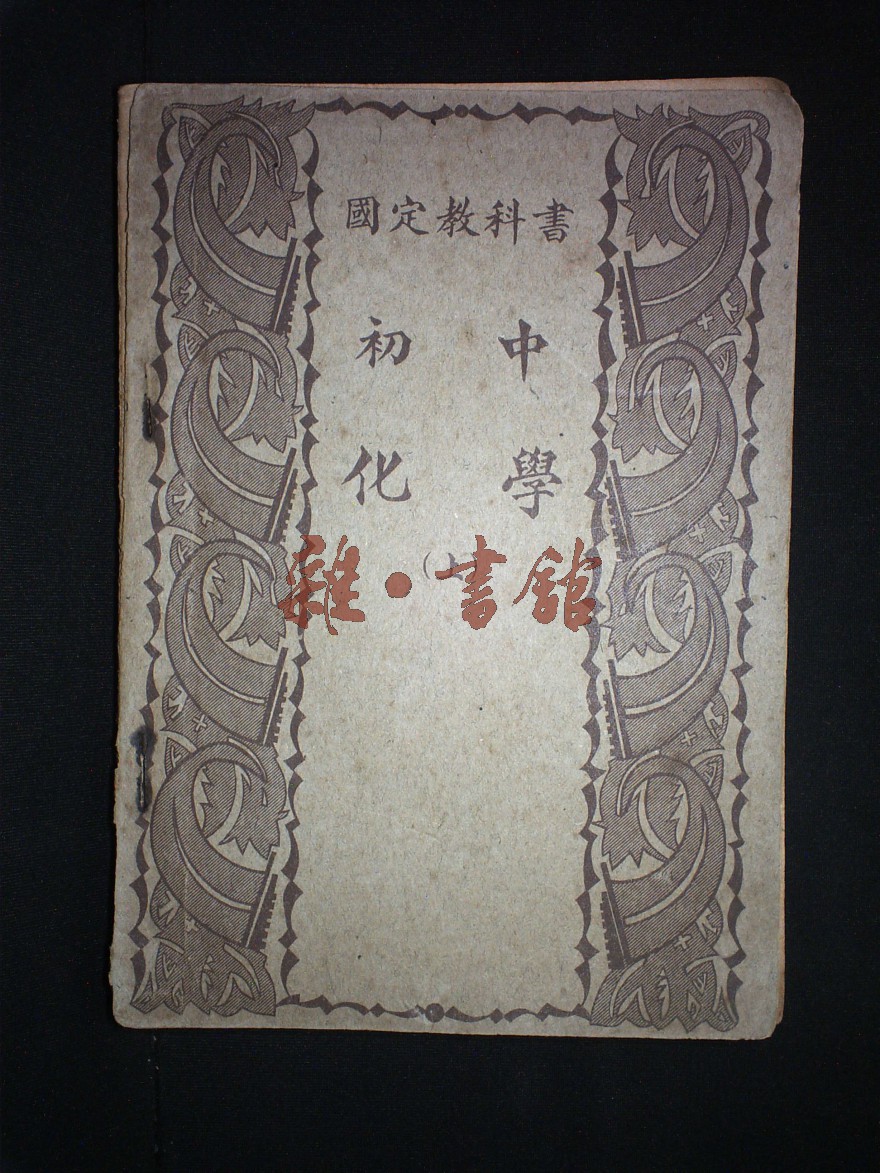 國定教科書
初中
化學
雜·書館